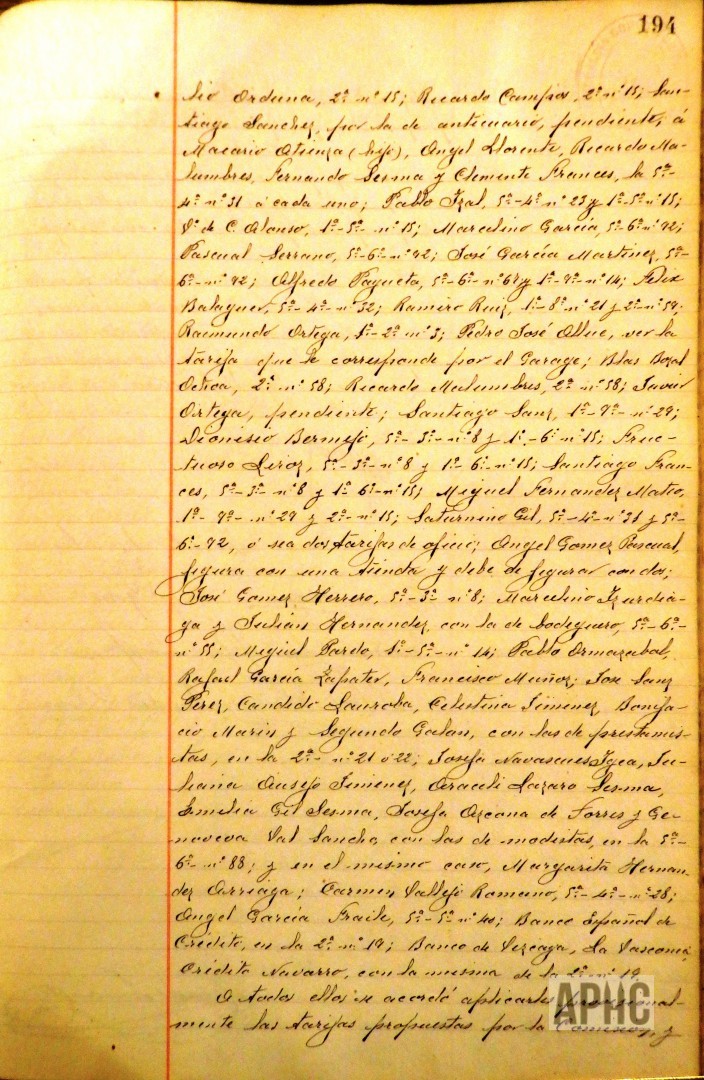 194
sio Orduna, 2ª nº 15; Ricardo Campos, 2ª nº 15; San-
tiago Sanchez, por la de anticuario, pendiente, á
Macario Atienza (hijo), Angel Llorente, Ricardo Ma-
lumbres, Fernando Sesma y Clemente Frances, la 5ª-
4ª nº 31 á cada uno; Pablo Tzal, 5ª-4ª nº 23 y 1ª-5ª nº 15;
Vª de C. Alonso, 1ª-5ª- nº 15; Marcelino García, 5ª-6ª nº 92;
Pascual Serrano, 5ª-6ª nº 92; José García Martinez, 5ª-
6ª- nº 92; Alfredo Pagueta, 5ª-6ª- nº 67 y 1ª-9ª- nº 14; Felix
Balaguer, 5ª- 4ª- nº 32; Ramiro Ruiz, 1ª-8ª nº 21 y 2ª- nº 59;
Raimundo Ortega, 1ª-2ª nº 3; Pedro José Allue, ver la
tarifa que le corresponde por el Garage; Blas Bozal
Ochoa, 2ª nº 58; Ricardo Malumbres, 2ª nº 58; Javier
Ortega, pendiente; Santiago Sanz, 1ª-9ª- nº 29;
Dionisio Bermejo, 5ª- 3ª- nº 8 y 1ª.-6ª nº 15; Fruc-
tuoso Liroz, 5ª-3ª- nº 8 y 1ª 6ª- nº 15; Santiago Fran-
ces, 5ª-3ª nº 8 y 1ª 6ª- nº 15; Miguel Fernandez Mateo,
1ª- 9ª- nº 29 y 2ª- nº 15; Saturnino Gil, 5ª-4ª- nº 31 y 5ª-
6ª- 92, ó sea dos tarifas de oficio; Angel Gomez Pascual,
figura con una tienda y debe de figurar con dos;
José Gomez Herrero, 5ª-3ª nº 8; Marcelino Izurdia-
ga y Julián Hernandez, con la de bodeguero, 5ª-6ª-
nº 55; Miguel Pardo, 1ª-5ª- nº 14; Pablo Ormazabal,
Rafael García Zapater, Francisco Muñoz; Jose Sanz
Pérez, Candido Lauroba, Celestina Jimenez, Bonifa-
cio Marin y Segundo Galan, con las de prestamis-
tas, en la 2ª- nº 21 ó 22; Josefa Navascues Igea, Ju-
liana Ausejo Jimenez, Araceli Lazaro Sesma,
Emilia Gil Sesma, Josefa Azcona de Forres y Ge-
noveva Val Sancho, con las de modistas, en la 5ª-
6ª- nº 88; y en el mismo caso, Margarita Hernan-
dez Arriaga; Carmen Vallejo Romano, 5ª- 4ª- nº 28;
Angel García Fraile, 5ª-5ª nº 40; Banco Español de
Crédito, en la 2ª nº 19; Banco de Vizcaya, La Vasconia,
Crédito Navarro, con la misma de la 2ª nº 19.
A todos ellos se acordó aplicarles provisional-
mente las tarifas propuestas por la Comision, y
APHC